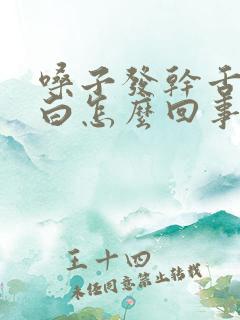 嗓子發幹舌
白怎麼回事
王十四
未经同意禁止转载